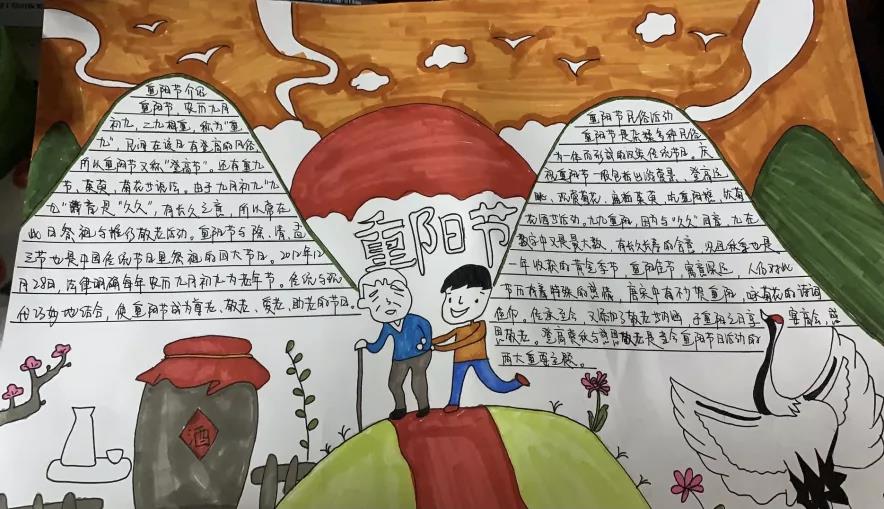 重阳节介绍
重阳节，农历九月
初九，二九相重，称为"重
九"，民间在该日有登高的风俗，
所以重阳节又称"登高节"。还有重九
节、茱萸、菊花节说法。由于九月初九"九
九"谐音是"久久"，有长久之意，所以常在
此日祭祖与推行敬老活动。重阳节与除、清、盂
三节也是中国传统节日里祭祖的四大节日。2012年12
月28日，法律明确每年农历九月初九为老年节。传统与现
代巧妙地结合，使重阳节成为尊老、敬老、爱老、助老的节日。
重阳节
重阳节民俗活动
重阳节是杂糅多种民俗
为一体而形成的汉族传统节日。庆
祝重阳节一般包括出游赏景、登高远
眺、观赏菊花、遍插茱萸、吃重阳糕、饮菊
花酒等活动。九九重阳，因为与"久久"同音，九在
数字中又是最大数，有长久长寿的含意，况且秋季也是
一年收获的黄金季节，重阳佳节，寓意深远，人们对此
节历有着特殊的感情，唐宋中有不少贺重阳，咏菊花的诗词
佳作。传承至今，又添加了敬老等内涵，于重阳之日享宴高会，感
恩敬老。登高赏秋与感恩敬老是当今重阳节日活动的
两大重要主题。
酒